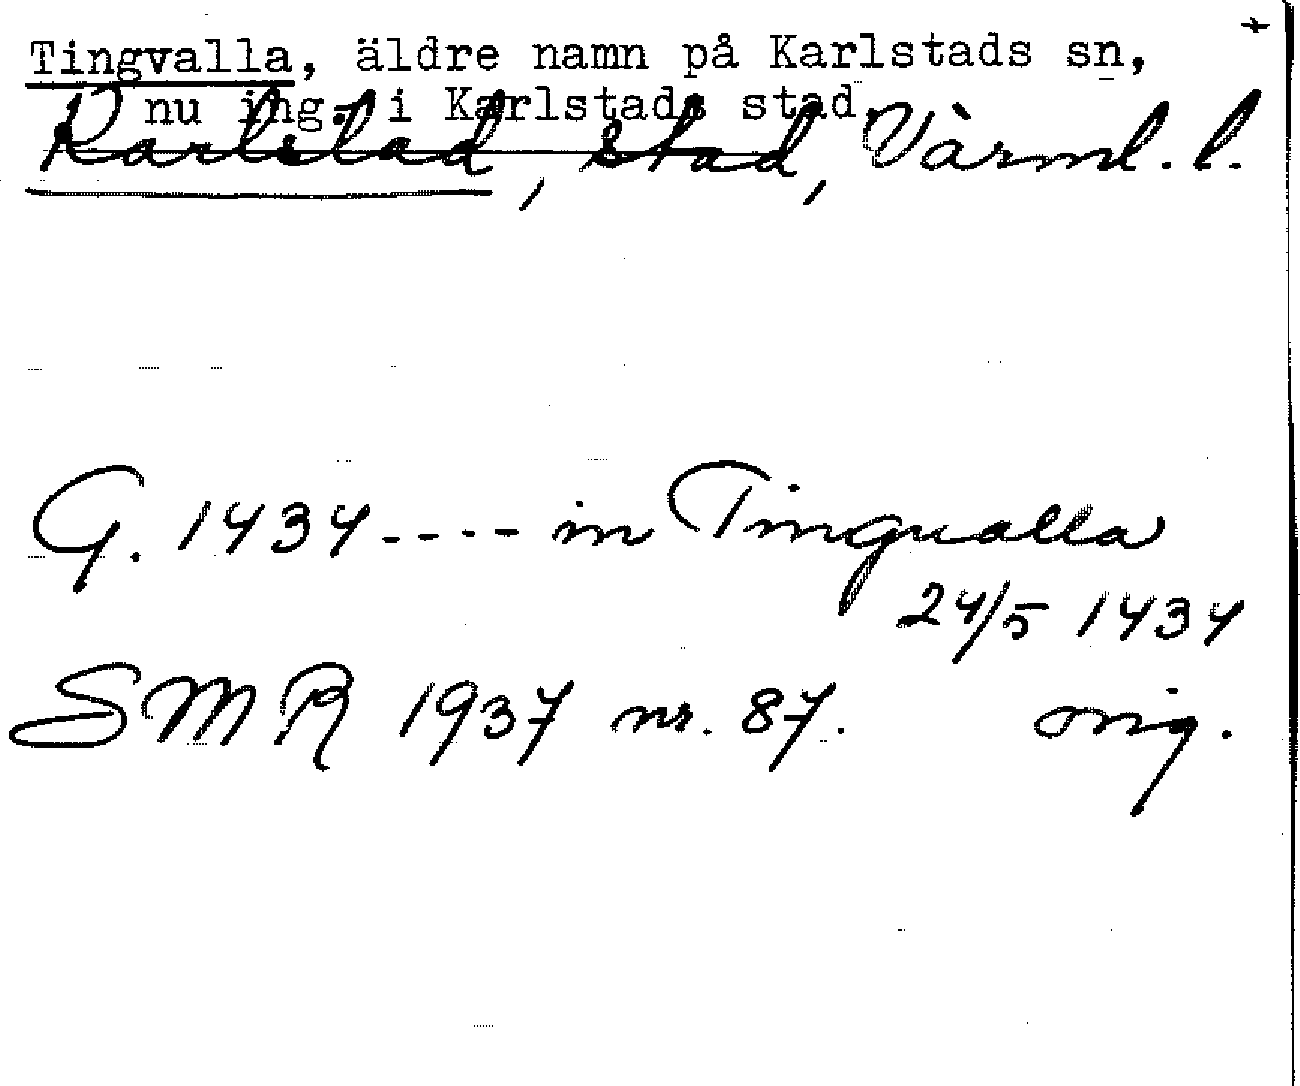 +
Tingvalla, äldre namn på Karlstads sn,
nu ing. i Karlstads stad,
Karlstad, stad, Värml. l.
G. 1434 ---- in Tingualla
24/5 1434
SMR 1937 nr. 87. orig.